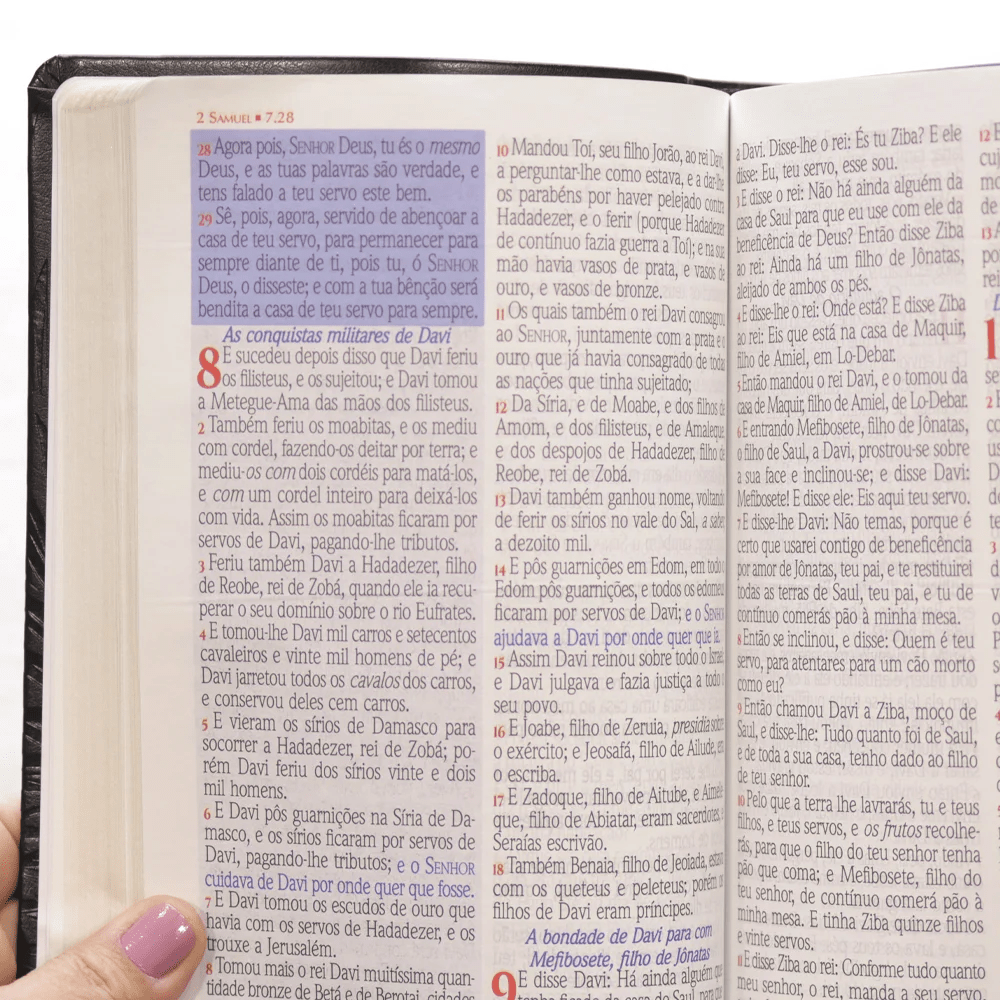 2 SAMUEL ▪ 7.28
28 Agora pois, SENHOR Deus, tu és o mesmo
Deus, e as tuas palavras são verdade, e
tens falado a teu servo este bem.
29 Sê, pois, agora, servido de abençoar a
casa de teu servo, para permanecer para
sempre diante de ti, pois tu, ó SENHOR
Deus, o disseste; e com a tua bênção será
bendita a casa de teu servo para sempre.
As conquistas militares de Davi
8 E sucedeu depois disso que Davi feriu
os filisteus, e os sujeitou; e Davi tomou
a Metegue-Ama das mãos dos filisteus.
2 Também feriu os moabitas, e os mediu
com cordel, fazendo-os deitar por terra; e
mediu-os com dois cordéis para matá-los,
e com um cordel inteiro para deixá-los
com vida. Assim os moabitas ficaram por
servos de Davi, pagando-lhe tributos.
3 Feriu também Davi a Hadadezer, filho
de Reobe, rei de Zobá, quando ele ia recu-
perar o seu domínio sobre o rio Eufrates.
4 E tomou-lhe Davi mil carros e setecentos
cavaleiros e vinte mil homens de pé; e
Davi jarretou todos os cavalos dos carros,
e conservou deles cem carros.
5 E vieram os sírios de Damasco para
socorrer a Hadadezer, rei de Zobá; po-
rém Davi feriu dos sírios vinte e dois
mil homens.
6 E Davi pôs guarnições na Síria de Da-
masco, e os sírios ficaram por servos de
Davi, pagando-lhe tributos; e o SENHOR
cuidava de Davi por onde quer que fosse.
7 E Davi tomou os escudos de ouro que
havia com os servos de Hadadezer, e os
trouxe a Jerusalém.
8 Tomou mais o rei Davi muitíssima quan-
tidade bronze de Betá e de Berotai, cidades
10 Mandou Toí, seu filho Jorão, ao rei Davi,
a perguntar-lhe como estava, e a dar-lhe
os parabéns por haver pelejado contra
Hadadezer, e o ferir (porque Hadadezer
de contínuo fazia guerra a Toí); e na sua
mão havia vasos de prata, e vasos de
ouro, e vasos de bronze.
11 Os quais também o rei Davi consagrou
ao SENHOR, juntamente com a prata e o
ouro que já havia consagrado de todas
as nações que tinha sujeitado;
12 Da Síria, e de Moabe, e dos filhos de
Amom, e dos filisteus, e de Amaleque,
e dos despojos de Hadadezer, filho de
Reobe, rei de Zobá.
13 Davi também ganhou nome, voltando
de ferir os sírios no vale do Sal, a saber
a dezoito mil.
14 E pôs guarnições em Edom, em todo o
Edom pôs guarnições, e todos os edomeus
ficaram por servos de Davi; e o SENHOR
ajudava a Davi por onde quer que ia.
15 Assim Davi reinou sobre todo o Israel,
e Davi julgava e fazia justiça a todo o
seu povo.
16 E Joabe, filho de Zeruia, presidia sobre
o exército; e Jeosafá, filho de Ailude, era
o escriba.
17 E Zadoque, filho de Aitube, e Aimele-
que, filho de Abiatar, eram sacerdotes, e
Seraías escrivão.
18 Também Benaia, filho de Jeoiada, estava
com os queteus e peleteus; porém os
filhos de Davi eram príncipes.
A bondade de Davi para com
Mefibosete, filho de Jônatas
9 E disse Davi: Há ainda alguém que
tenha ficado da casa de Saul, para que
a Davi. Disse-lhe o rei: És tu Ziba? E ele
disse: Eu, teu servo, esse sou.
3 E disse o rei: Não há ainda alguém da
casa de Saul para que eu use com ele da
beneficência de Deus? Então disse Ziba
ao rei: Ainda há um filho de Jônatas,
aleijado de ambos os pés.
4 E disse-lhe o rei: Onde está? E disse Ziba
ao rei: Eis que está na casa de Maquir,
filho de Amiel, em Lo-Debar.
5 Então mandou o rei Davi, e o tomou da
casa de Maquir, filho de Amiel, de Lo-Debar.
6 E entrando Mefibosete, filho de Jônatas,
o filho de Saul, a Davi, prostrou-se sobre
a sua face e inclinou-se; e disse Davi:
Mefibosete! E disse ele: Eis aqui teu servo.
7 E disse-lhe Davi: Não temas, porque é
certo que usarei contigo de beneficência
por amor de Jônatas, teu pai, e te restituirei
todas as terras de Saul, teu pai, e tu de
contínuo comerás pão à minha mesa.
8 Então se inclinou, e disse: Quem é teu
servo, para atentares para um cão morto
como eu?
9 Então chamou Davi a Ziba, moço de
Saul, e disse-lhe: Tudo quanto foi de Saul,
e de toda a sua casa, tenho dado ao filho
de teu senhor.
10 Pelo que a terra lhe lavrarás, tu e teus
filhos, e teus servos, e os frutos recolhe-
rás, para que o filho do teu senhor tenha
pão que coma; e Mefibosete, filho do
teu senhor, de contínuo comerá pão à
minha mesa. E tinha Ziba quinze filhos
e vinte servos.
11 E disse Ziba ao rei: Conforme tudo quanto
meu senhor, o rei, manda a seu servo,
12
13